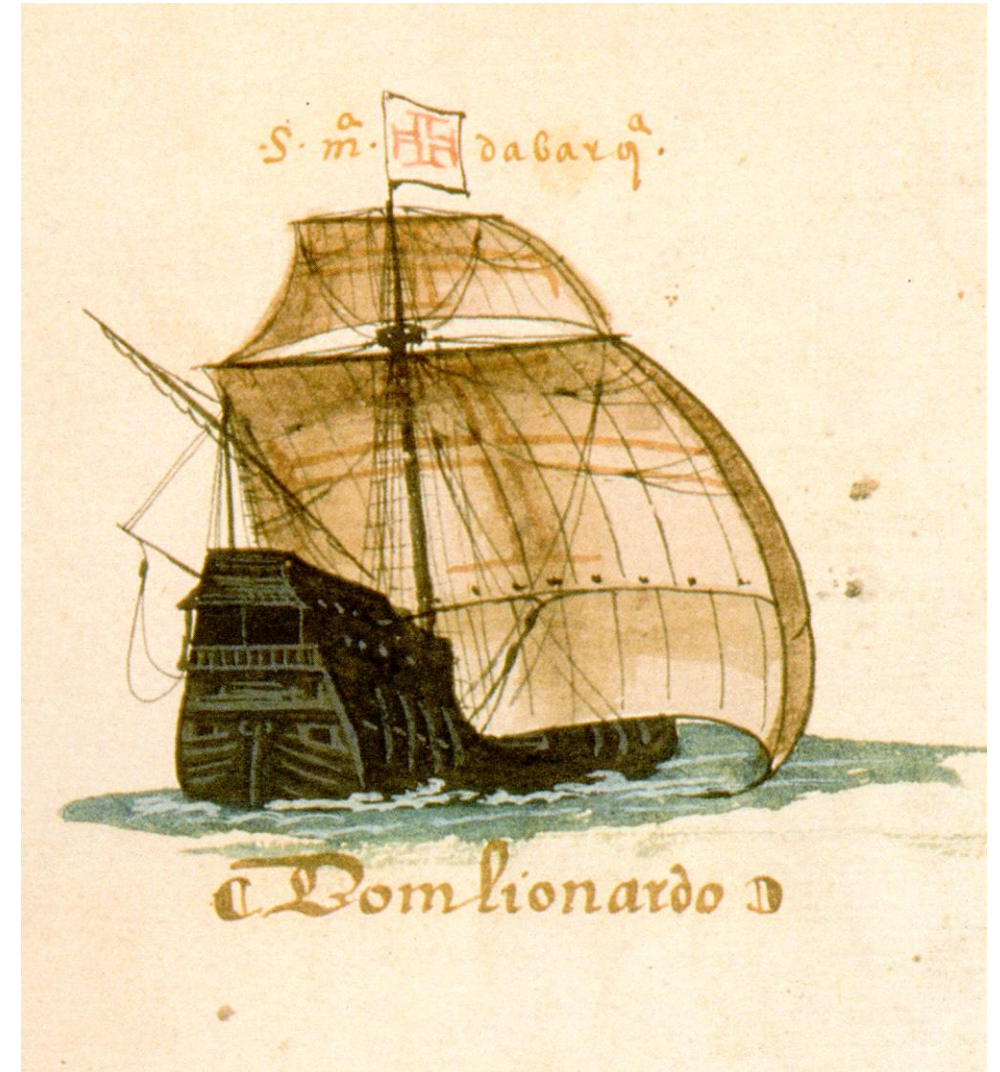 ·S· m̃ᵃ· dabarq̃ᵃ·
Dom lionardo